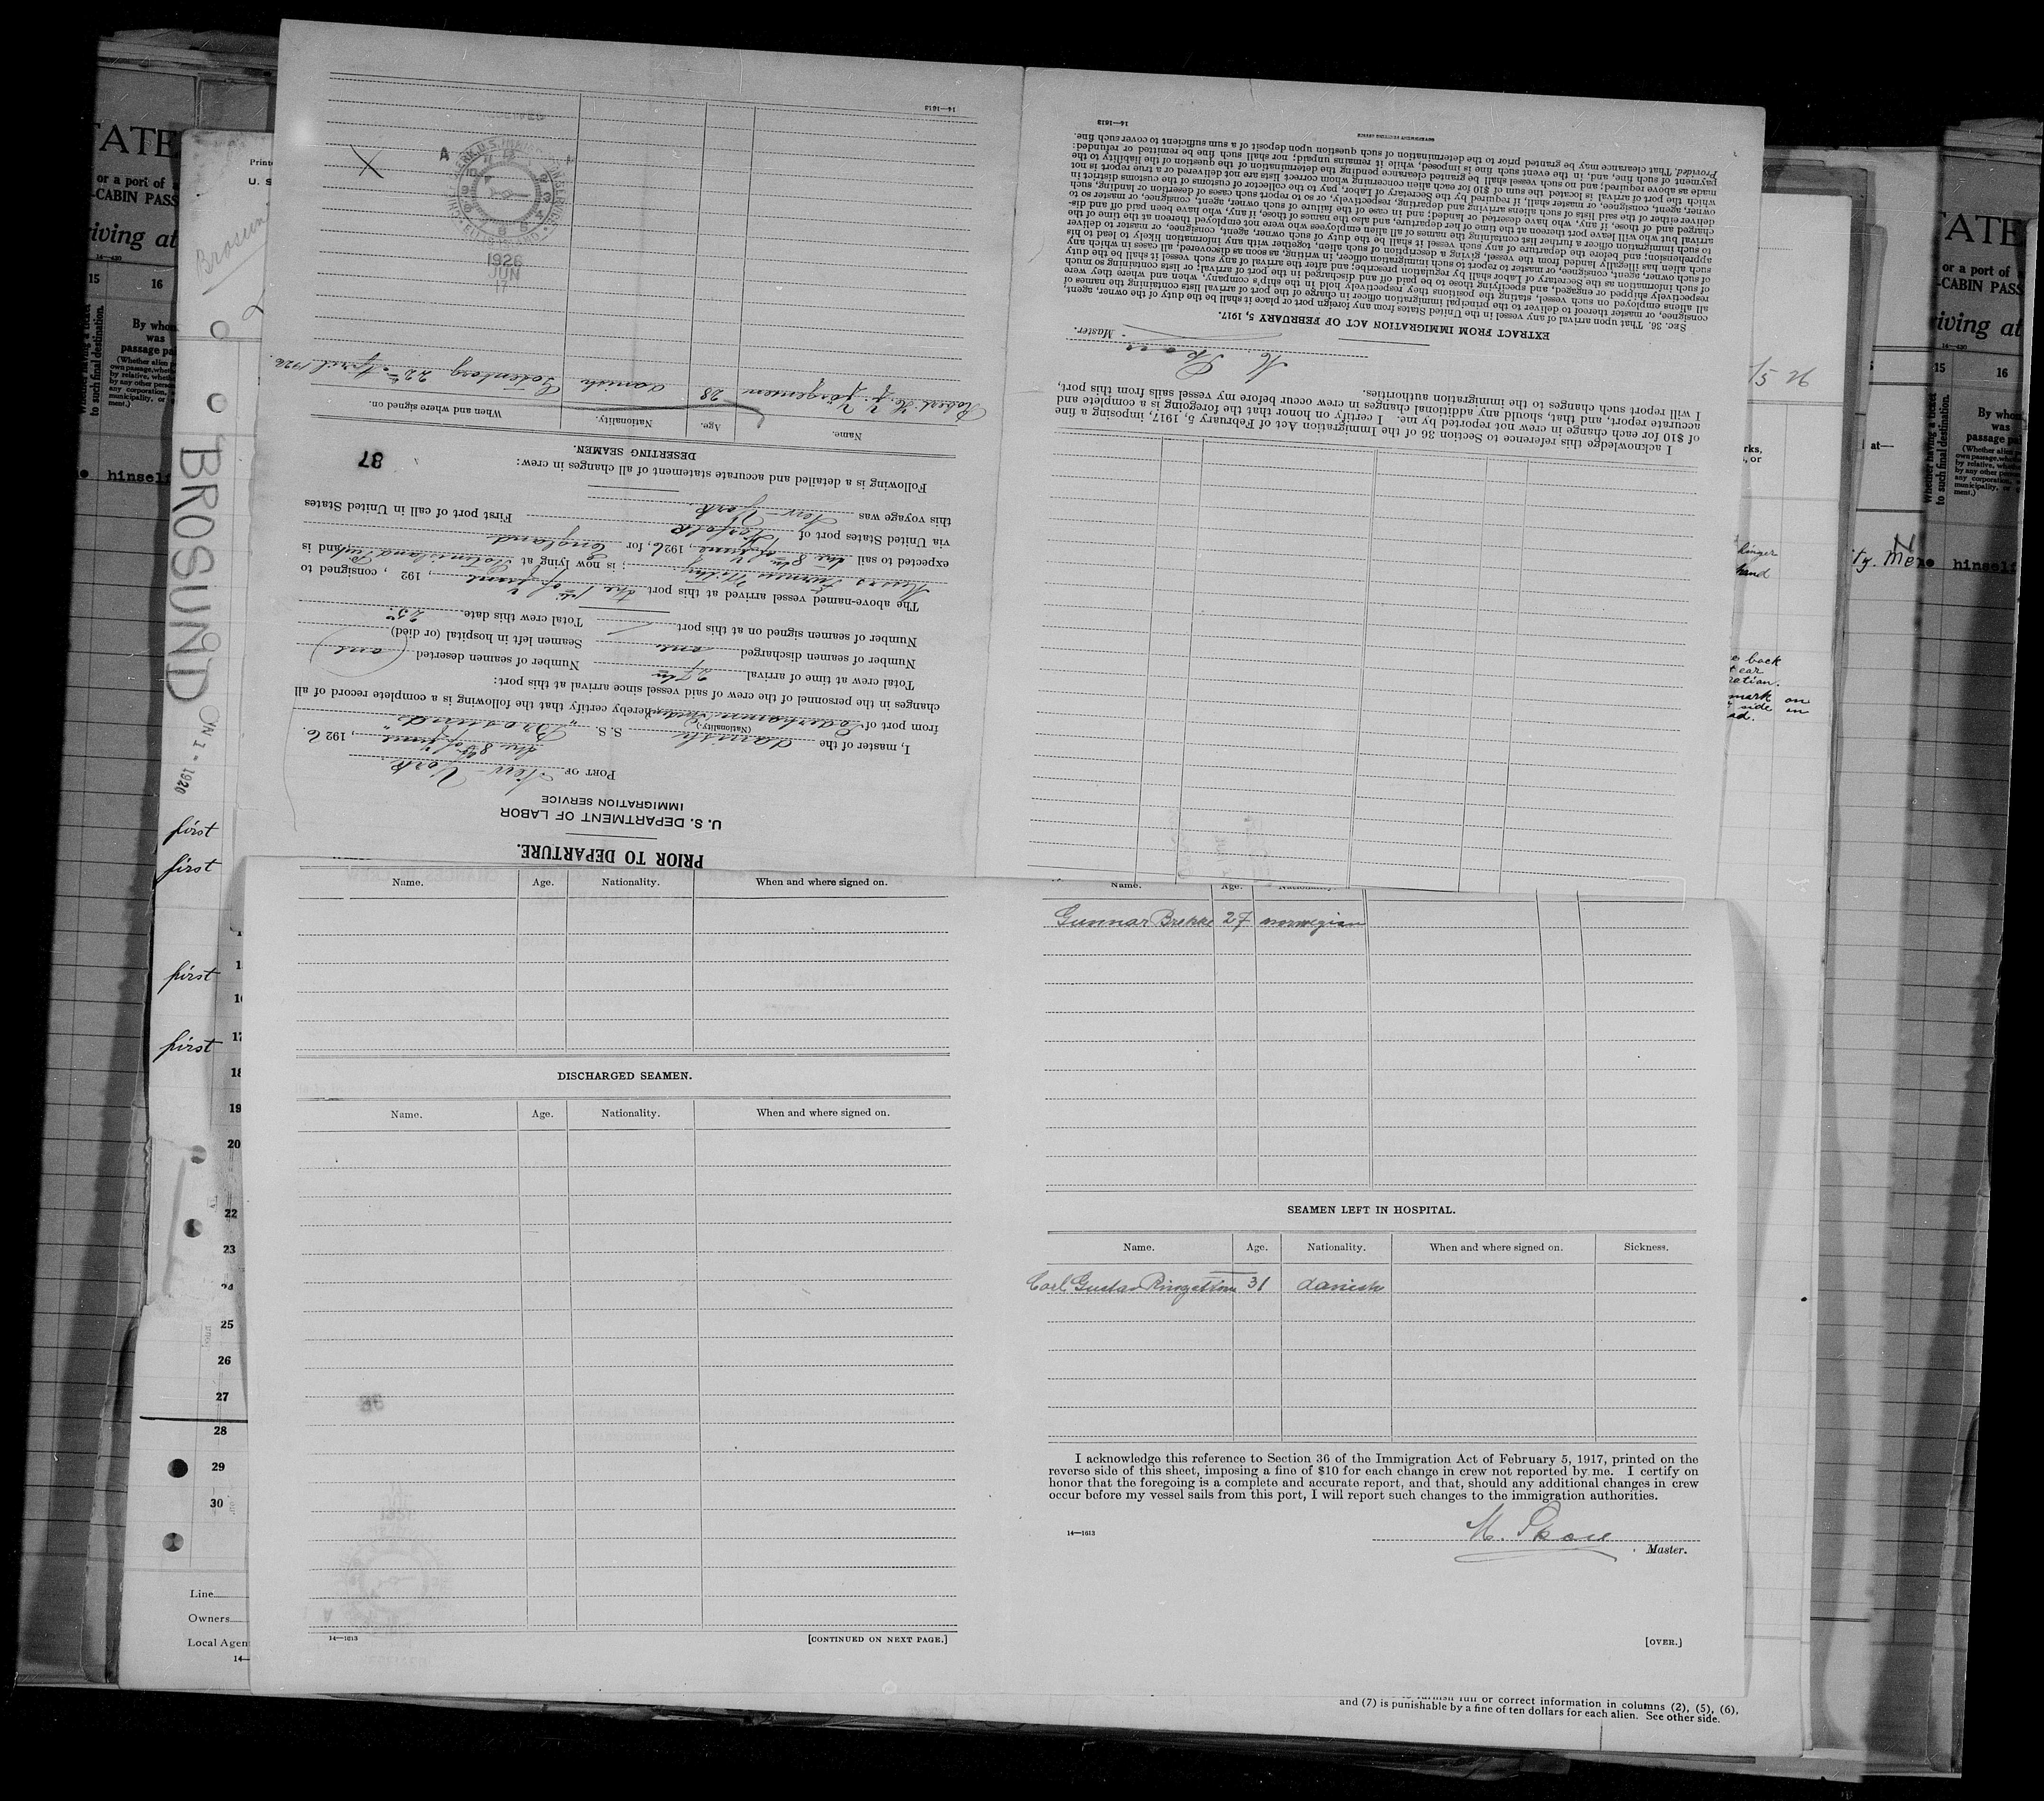 PRIOR TO DEPARTURE.
U. S. DEPARTMENT OF LABOR
IMMIGRATION SERVICE
PORT OF New-York.
the 8th of June, 1926.
I, master of the danish S. S. "Brosund"
(Nationality.)
from port of hereby certify that the following is a complete record of all
changes in the personnel of the crew of said vessel since arrival at this port:
Total crew at time of arrival Number of seamen deserted one
Number of seamen discharged one Seamen left in hospital (or died)
Number of seamen signed on at this port Total crew this date 25
The above-named vessel arrived at this port the 1st of June, 192 , consigned to
; is now lying at and is
expected to sail the 8th of June, 1926, for England
via United States port of Norfolk First port of call in United States
this voyage was New York
Following is a detailed and accurate statement of all changes in crew:
87
DESERTING SEAMEN.
Name. Age. Nationality. When and where signed on.
Robert K. V. Jörgensen 28 danish Gotenborg 22 April 1926.
1926
JUN
17
A
14—1613
I acknowledge this reference to Section 36 of the Immigration Act of February 5, 1917, imposing a fine
of $10 for each change in crew not reported by me. I certify on honor that the foregoing is a complete and
accurate report, and that, should any additional changes in crew occur before my vessel sails from this port,
I will report such changes to the immigration authorities.
M. Skou
Master.
EXTRACT FROM IMMIGRATION ACT OF FEBRUARY 5, 1917.
SEC. 36. That upon arrival of any vessel in the United States from any foreign port or place it shall be the duty of the owner, agent,
consignee, or master thereof to deliver to the principal immigration officer in charge of the port of arrival lists containing the names of
all aliens employed on such vessel, stating the positions they respectively hold in the ship's company, when and where they were
respectively shipped or engaged, and specifying those to be paid off and discharged in the port of arrival; or lists containing so much
of such information as the Secretary of Labor shall by regulation prescribe; and after the arrival of any such vessel it shall be the duty
of such owner, agent, consignee, or master to report to such immigration officer, in writing, as soon as discovered, all cases in which any
such alien has illegally landed from the vessel, giving a description of such alien, together with any information likely to lead to his
apprehension; and before the departure of any such vessel it shall be the duty of such owner, agent, consignee, or master to deliver
to such immigration officer a further list containing the names of all alien employees who were not employed thereon at the time of the
arrival but who will leave port thereon at the time of her departure, and also the names of those, if any, who have been paid off and dis-
charged and of those, if any, who have deserted or landed; and in case of the failure of such owner, agent, consignee, or master so to
deliver either of the said lists of such aliens arriving and departing, respectively, or so to report such cases of desertion or landing, such
owner, agent, consignee, or master shall, if required by the Secretary of Labor, pay to the collector of customs of the customs district in
which the port of arrival is located the sum of $10 for each alien concerning whom correct lists are not delivered or a true report is not
made as above required; and no such vessel shall be granted clearance pending the determination of the question of the liability to the
payment of such fine, and, in the event such fine is imposed, while it remains unpaid; nor shall such fine be remitted or refunded:
Provided, That clearance may be granted prior to the determination of such question upon deposit of a sum sufficient to cover such fine.
GOVERNMENT PRINTING OFFICE
14—1613
Name. Age. Nationality. When and where signed on.
DISCHARGED SEAMEN.
Name. Age. Nationality. When and where signed on.
14—1613
[CONTINUED ON NEXT PAGE.]
Name. Age. Nationality.
Gunnar Brekke 27 norwegian
SEAMEN LEFT IN HOSPITAL.
Name. Age. Nationality. When and where signed on. Sickness.
Carl Gustav Ringström 31 danish
I acknowledge this reference to Section 36 of the Immigration Act of February 5, 1917, printed on the
reverse side of this sheet, imposing a fine of $10 for each change in crew not reported by me. I certify on
honor that the foregoing is a complete and accurate report, and that, should any additional changes in crew
occur before my vessel sails from this port, I will report such changes to the immigration authorities.
M. Skou
14—1613
Master.
[OVER.]
BROSUND
first
first
first
first
16
17
18
19
20
22
23
24
25
26
27
28
29
30
Line
Owners
Local Agen
or correct information in columns (2), (5), (6),
and (7) is punishable by a fine of ten dollars for each alien. See other side.
TATE
or a port of
-CABIN PASS
iving at
14—430
15 16
By whom
was
passage pa
to such final destination.
himself
ATE
or a port of
-CABIN PASS
iving at
14—430
15 16
By who
was
passage pai
to such final destination.
himself